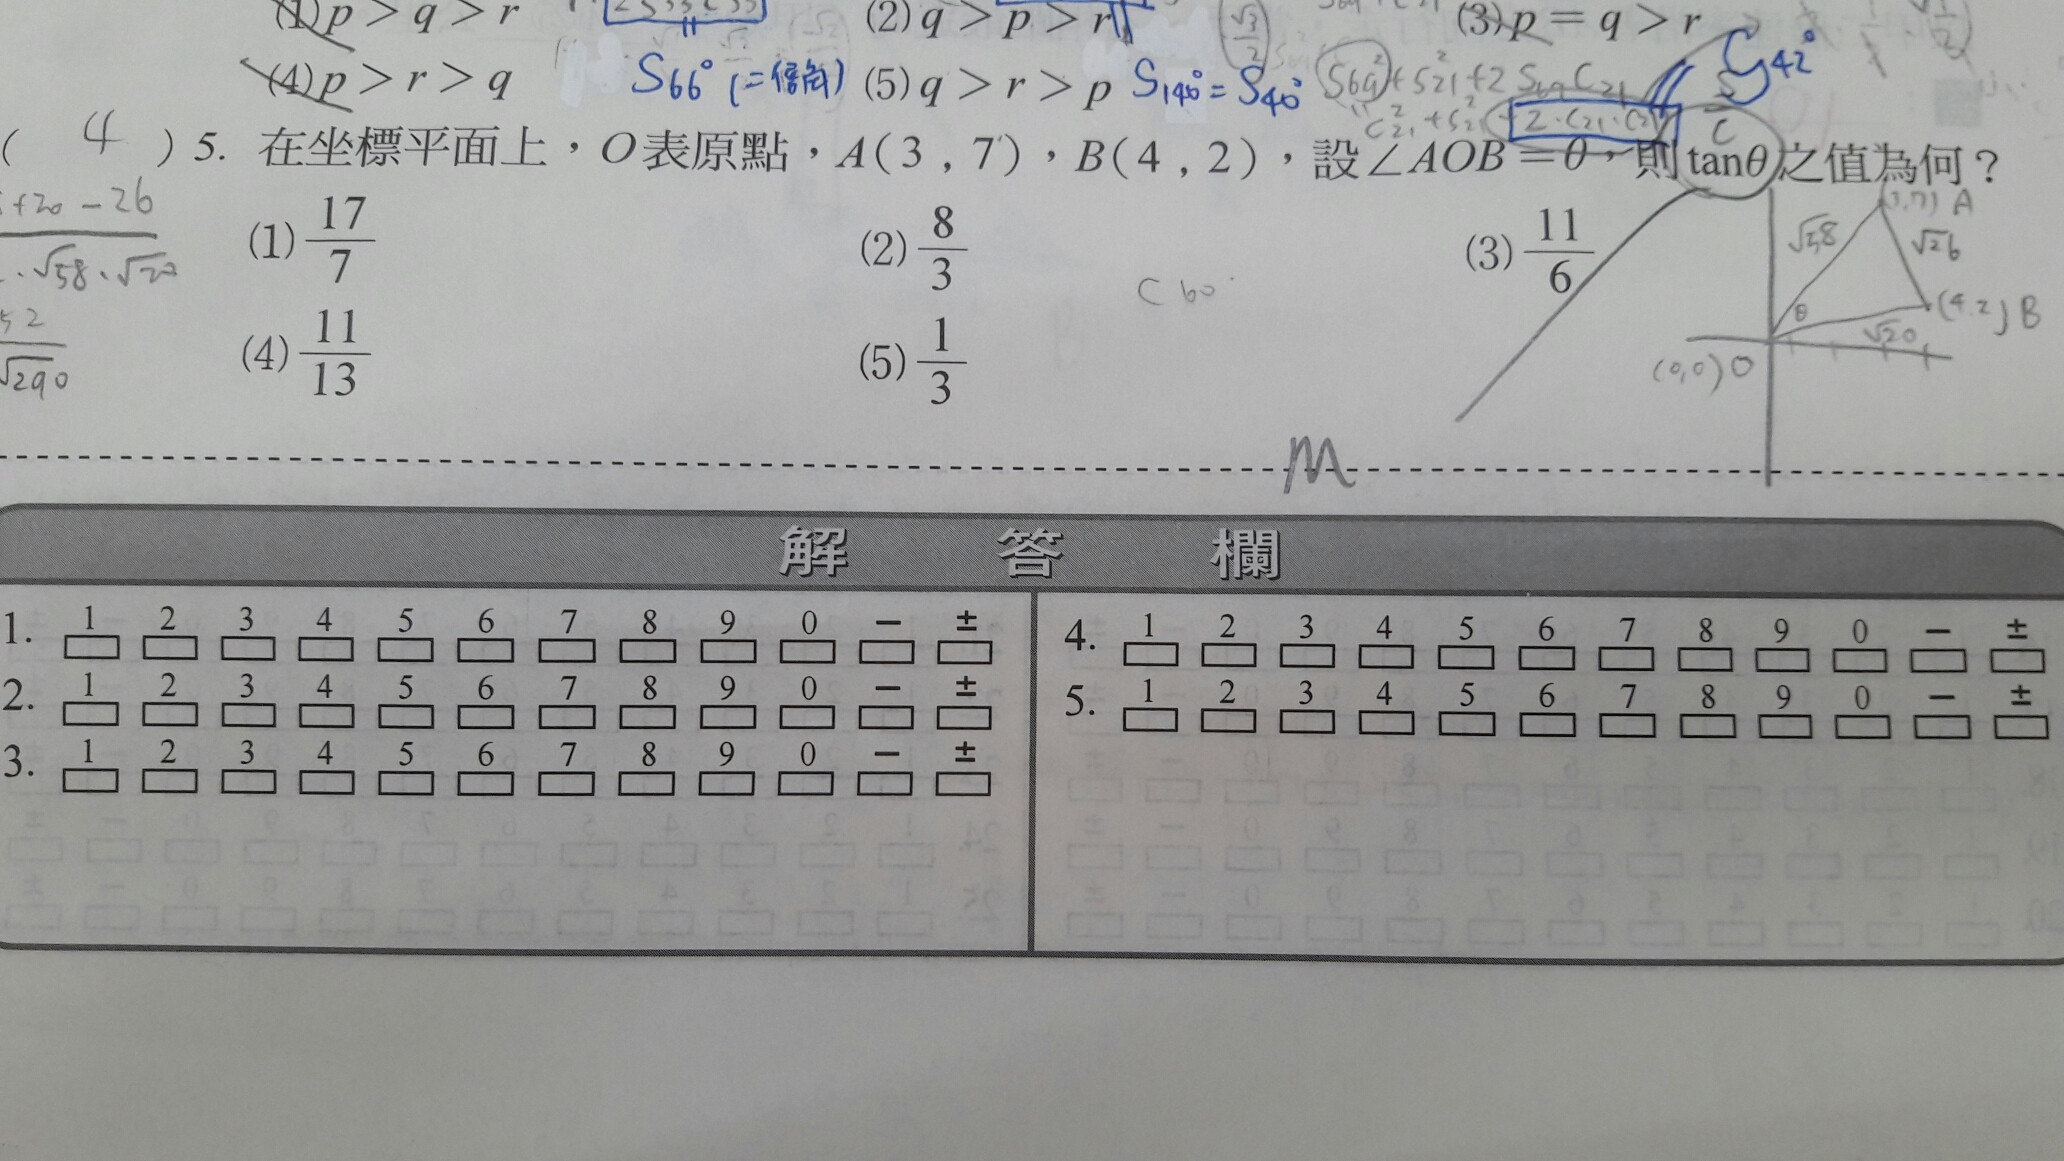 (1) p > q > r (2) q > p > r (3) p = q > r
(4) p > r > q S66° (二倍角) (5) q > r > p S140° = S40° C42°
( 4 ) 5. 在坐標平面上，O表原點，A(3 , 7)，B(4 , 2)，設∠AOB = θ，則tanθ之值為何？
+20 - 26
√58 · √20
52
√290
(1) 17/7 (2) 8/3 (3) 11/6
C 60°
(4) 11/13 (5) 1/3
(3,7) A
√58 √26
θ (4.2) B
√20
(0,0) O
M
解答欄
1. 1 2 3 4 5 6 7 8 9 0 − ±
2. 1 2 3 4 5 6 7 8 9 0 − ±
3. 1 2 3 4 5 6 7 8 9 0 − ±
4. 1 2 3 4 5 6 7 8 9 0 − ±
5. 1 2 3 4 5 6 7 8 9 0 − ±